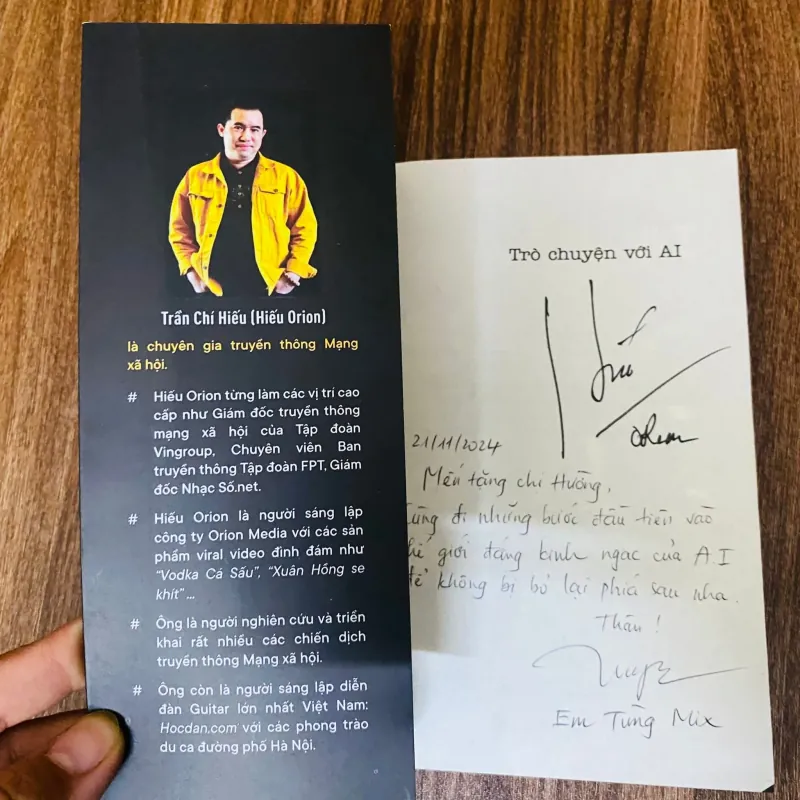 Trần Chí Hiếu (Hiếu Orion)
là chuyên gia truyền thông Mạng
xã hội.
# Hiếu Orion từng làm các vị trí cao
cấp như Giám đốc truyền thông
mạng xã hội của Tập đoàn
Vingroup, Chuyên viên Ban
truyền thông Tập đoàn FPT, Giám
đốc Nhạc Số.net.
# Hiếu Orion là người sáng lập
công ty Orion Media với các sản
phẩm viral video đình đám như
“Vodka Cá Sấu”, “Xuân Hồng se
khít”...
# Ông là người nghiên cứu và triển
khai rất nhiều các chiến dịch
truyền thông Mạng xã hội.
# Ông còn là người sáng lập diễn
đàn Guitar lớn nhất Việt Nam:
Hocdan.com với các phong trào
du ca đường phố Hà Nội.
Trò chuyện với AI
21/11/2024
Mến tặng chị Hường,
Cùng đi những bước đầu tiên vào
thế giới đáng kinh ngạc của AI
để không bị bỏ lại phía sau nha.
Thân!
Em Tùng Mix